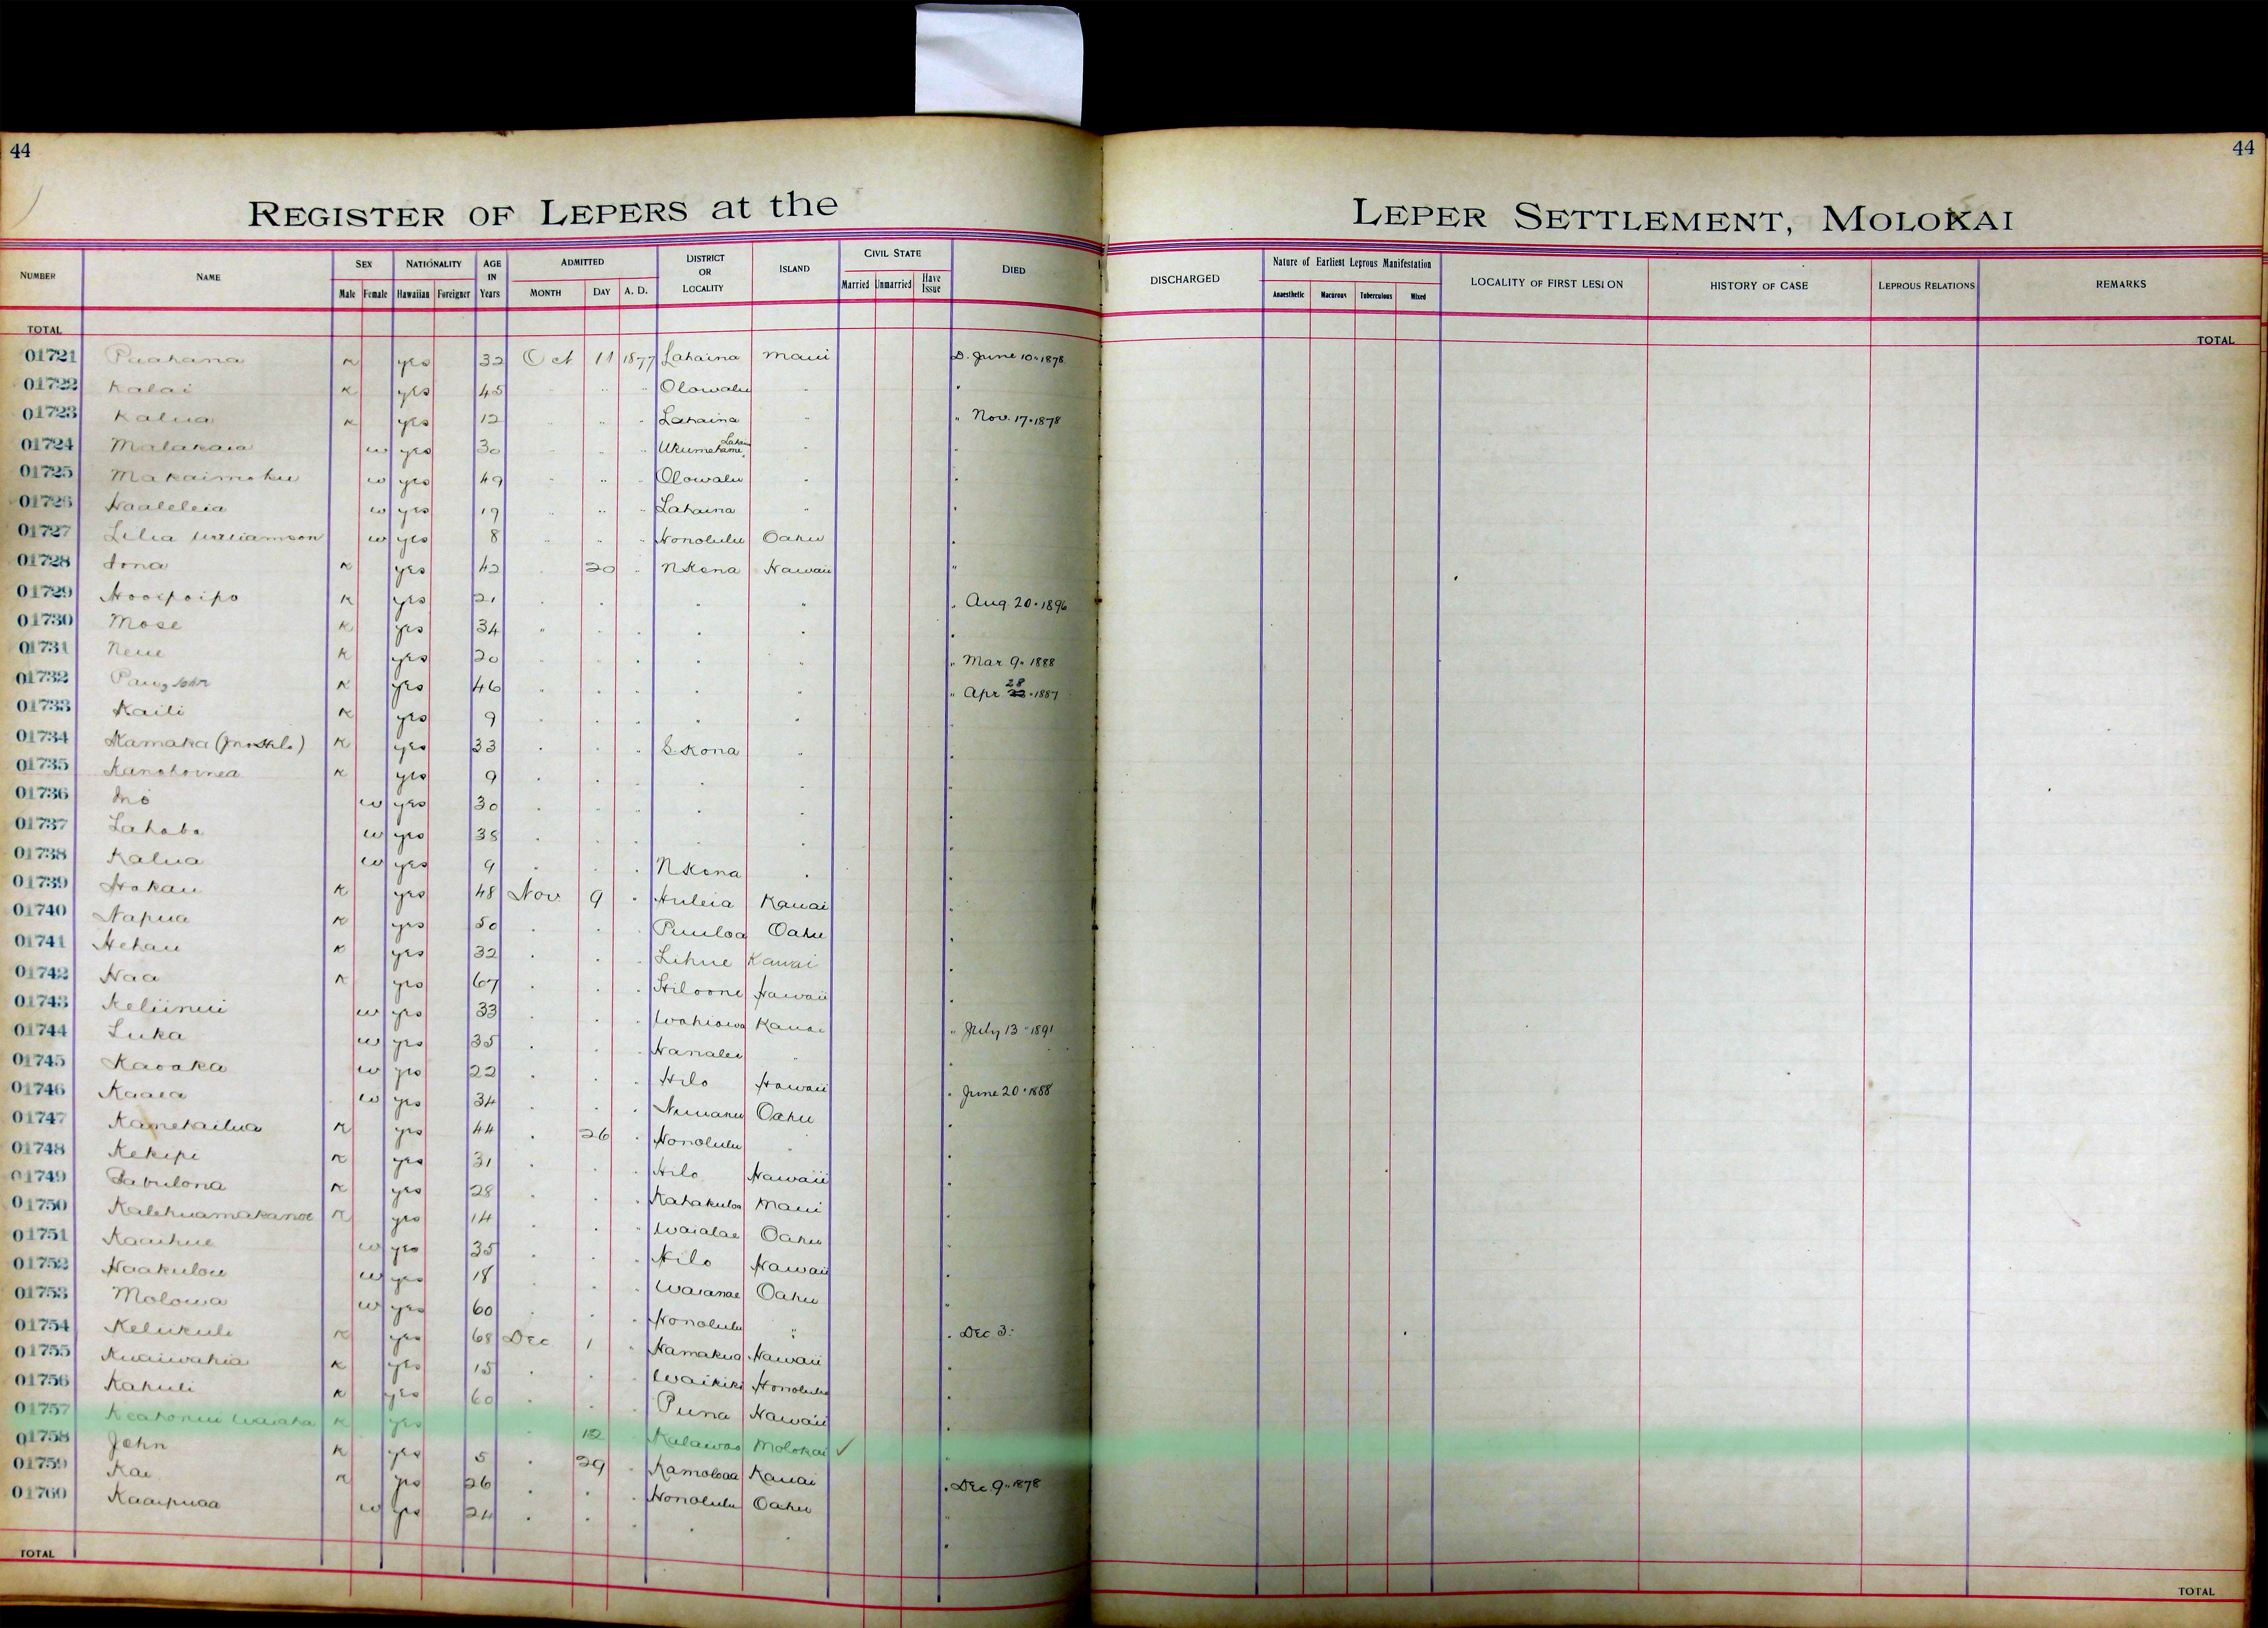 44
44
REGISTER OF LEPERS at the
LEPER SETTLEMENT, MOLOKAI
NUMBER NAME SEX NATIONALITY AGE IN Years ADMITTED DISTRICT OR LOCALITY ISLAND CIVIL STATE DIED
Male Female Hawaiian Foreigner MONTH DAY A. D. Married Unmarried Have Issue
DISCHARGED Nature of Earliest Leprous Manifestation LOCALITY OF FIRST LESION HISTORY OF CASE LEPROUS RELATIONS REMARKS
Anaesthetic Macurous Tuberculous Mixed
TOTAL
TOTAL
01721 Puahana K yes 32 Oct 11 1877 Lahaina Maui D. June 10 " 1878
01722 Kalai K yes 45 " " " Olowalu " "
01723 Kalua K yes 12 " " " Lahaina " " Nov. 17 " 1878
01724 Malakaia w yes 30 " " " Ukumehame " "
01725 Makaimoku w yes 49 " " " Olowalu " "
01726 Haaleleia w yes 19 " " " Lahaina " "
01727 Lilia Williamson w yes 8 " " " Honolulu Oahu "
01728 Iona K yes 42 " 20 " N Kona Hawaii "
01729 Hooipoipo K yes 21 " " " " " " Aug. 20 " 1896
01730 Mose K yes 34 " " " " " "
01731 Neue K yes 20 " " " " " " Mar 9 " 1888
01732 John K yes 46 " " " " " " Apr 28 " 1887
01733 Kaili K yes 9 " " " " " "
01734 Kamaka K yes 33 " " " S. Kona " "
01735 K yes 9 " " " " " "
01736 Ino w yes 30 " " " " " "
01737 Lahaba w yes 38 " " " " " "
01738 Kalua w yes 9 " " " N Kona " "
01739 Hokau K yes 48 Nov 9 " Huleia Kauai "
01740 Napua K yes 50 " " " Puuloa Oahu "
01741 Hehau K yes 32 " " " Lihue Kauai "
01742 Naa K yes 67 " " " Hiloone Hawaii "
01743 Keliinui w yes 33 " " " Wahiawa Kauai " July 13 " 1891
01744 Luka w yes 35 " " " Hanalei " "
01745 Kaoaka w yes 22 " " " Hilo Hawaii " June 20 " 1888
01746 Kaaea w yes 34 " " " Nuuanu Oahu "
01747 Kamehailua K yes 44 " 26 " Honolulu " "
01748 Kekipi K yes 31 " " " Hilo Hawaii "
01749 Zabulona K yes 28 " " " Kahakuloa Maui "
01750 Kalehuamakanoe K yes 14 " " " Waialae Oahu "
01751 Kaaihue w yes 35 " " " Hilo Hawaii "
01752 Haakulou w yes 18 " " " Waianae Oahu "
01753 Molowa w yes 60 " " " Honolulu " " Dec 3.
01754 Kelukuli K yes 68 Dec 1 " Hamakua Hawaii "
01755 Kuaiwahia K yes 15 " " " Waikiki Honolulu "
01756 Kahuli K yes 60 " " " Puna Hawaii "
01757 K yes 12 Kalawao Molokai ✓ "
01758 John K yes 5 " 29 " Kamoloaa Kauai " Dec 9 " 1878
01759 Kai K yes 26 " " " Honolulu Oahu "
01760 Kaaipuaa w yes 24 " " " " " "
TOTAL
TOTAL